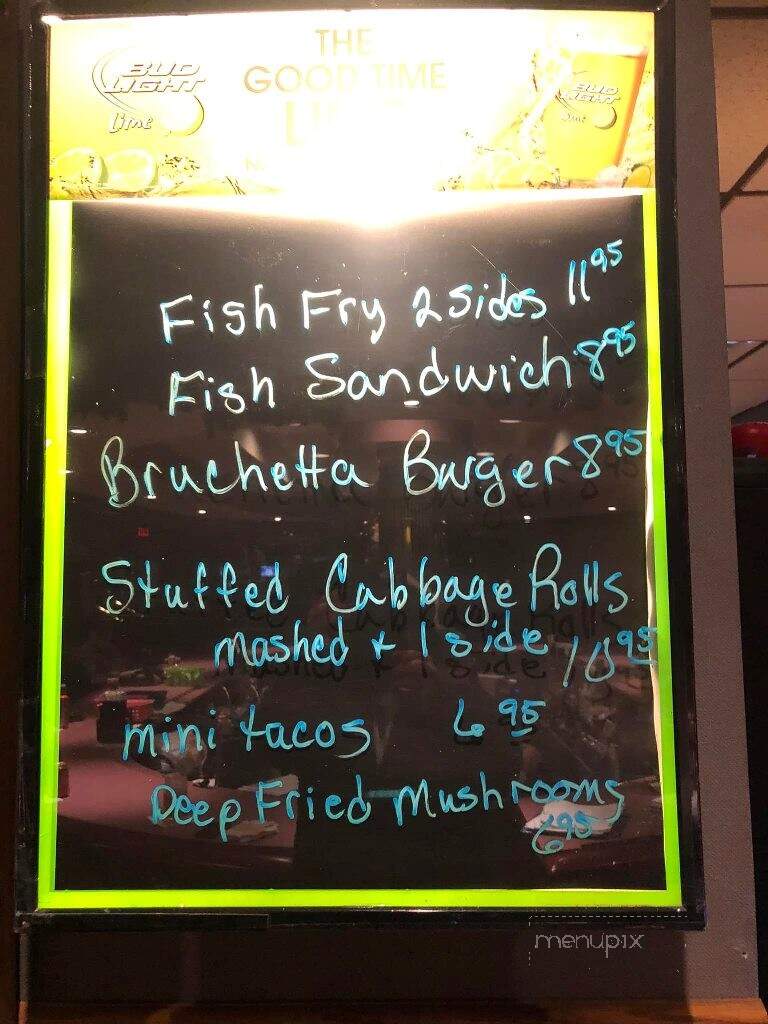 BUD
LIGHT
Lime
THE
GOOD TIME
BUD
LIGHT
Lime
Fish Fry 2 sides 11 95
Fish Sandwich 8 95
Bruchetta Burger 8 95
Stuffed Cabbage Rolls
mashed + 1 side 10 95
mini tacos 6 95
Deep Fried Mushrooms
6 95
menupix